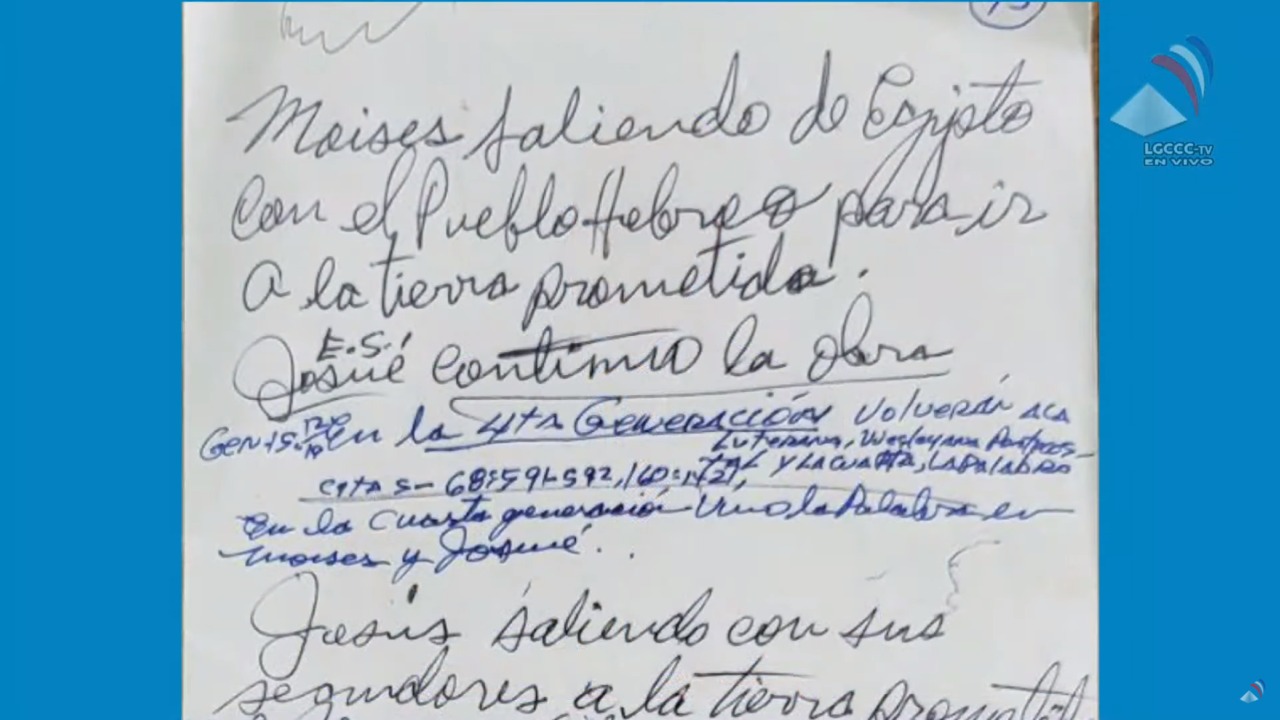 13
LGCCC-TV
EN VIVO
Moises saliendo de Egipto
con el Pueblo Hebreo para ir
a la tierra prometida.
E.S.
Josué continuo la obra
En la 4ta Generación volverán acá
Luterana, Wesleyana, Pentecos-
tal y la cuarta, la Palabra
citas - 68:591-592, 160:1-
En la cuarta generación vino la Palabra en
moises y Josué.
Jesús saliendo con sus
seguidores a la tierra